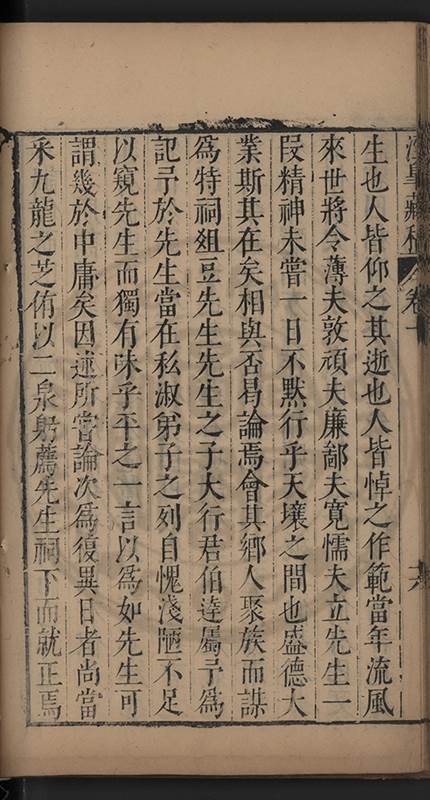 生也人皆仰之其逝也人皆悼之作範當年流風
來世將令薄夫敦頑夫廉鄙夫寬懦夫立先生一
段精神未嘗一日不默行乎天壤之間也盛德大
業斯其在矣相與否曷論焉會其鄉人聚族而謀
爲特祠俎豆先生先生之子大行君伯達屬予爲
記予於先生當在私淑弟子之列自愧淺陋不足
以窺先生而獨有味乎平之一言以爲如先生可
謂幾於中庸矣因述所嘗論次爲復異日者尚當
采九龍之芝侑以二泉躬薦先生祠下而就正焉
藏稿 卷十